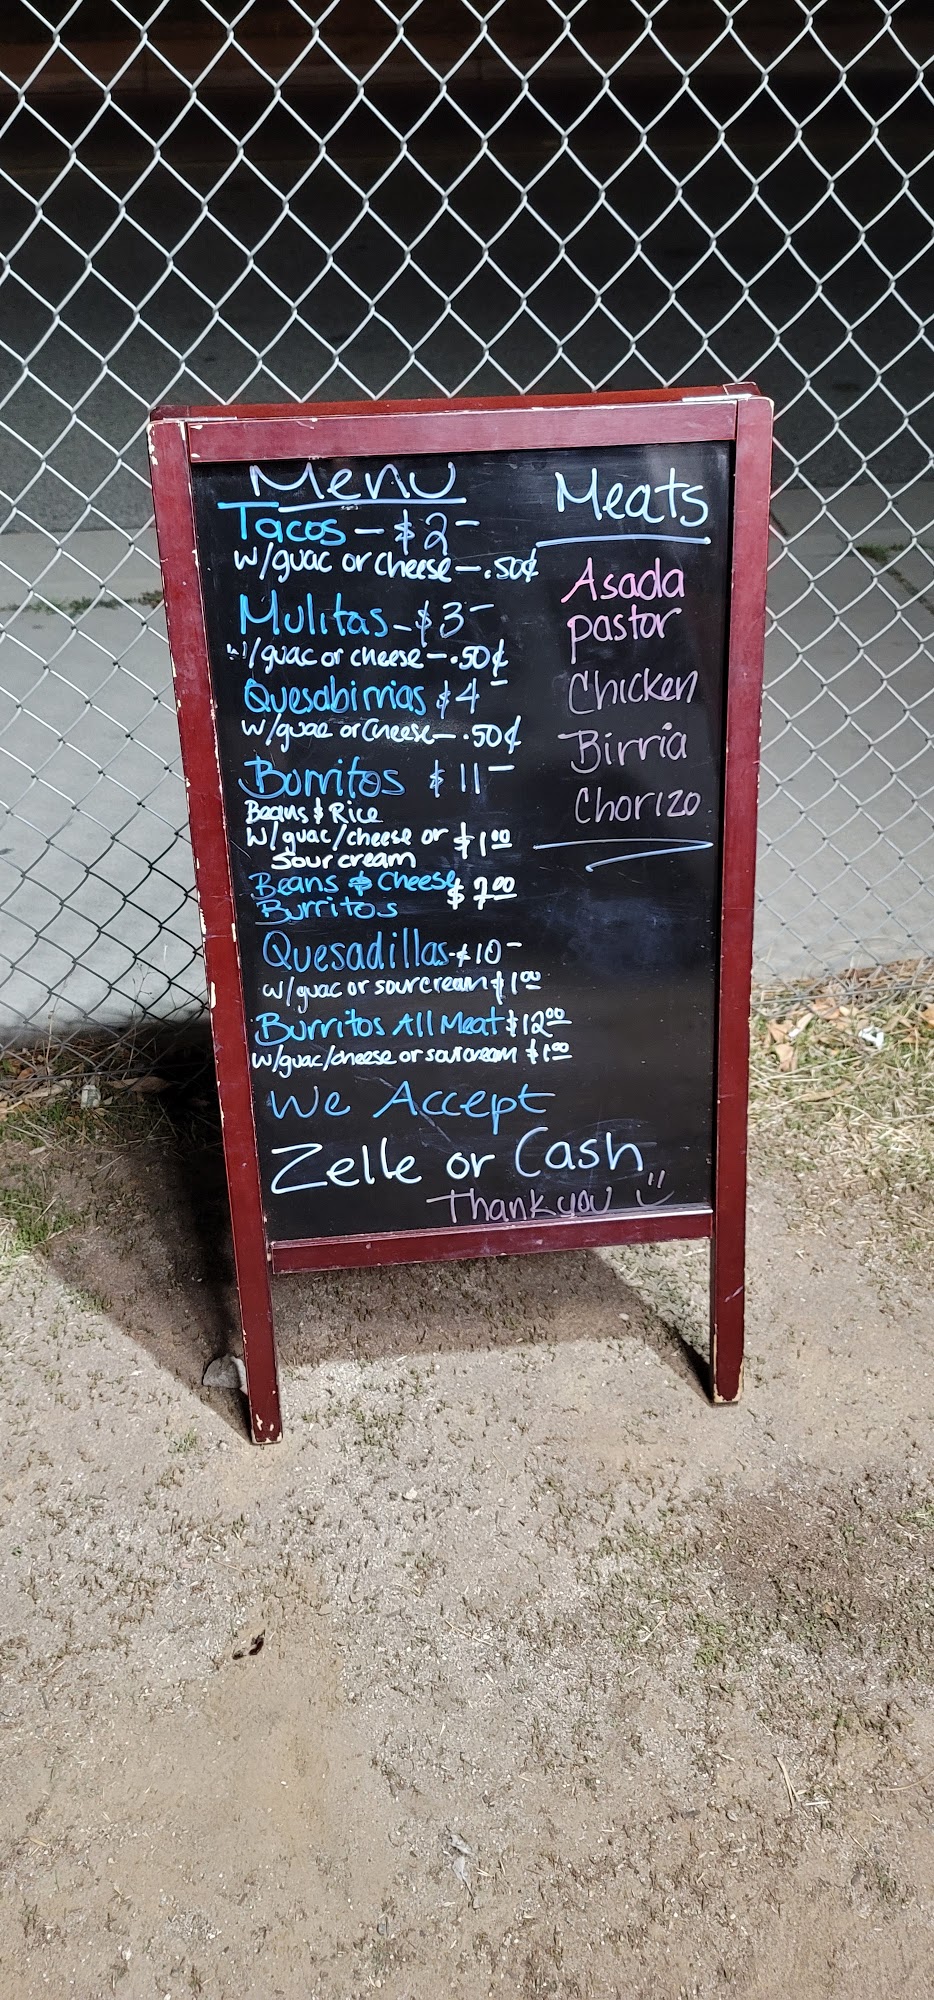 Menu
Tacos - $2-
w/guac or cheese - .50¢
Mulitas - $3-
w/guac or cheese - .50¢
Quesabirrias $4-
w/guac or cheese - .50¢
Burritos $11-
Beans & Rice
w/guac/cheese or $1.00
sour cream
Beans & Cheese $7.00
Burritos
Quesadillas - $10-
w/guac or sourcream $1.00
Burritos All Meat $12.00
w/guac/cheese or sourcream $1.00
We Accept
Zelle or Cash
Thank you
Meats
Asada
pastor
Chicken
Birria
Chorizo